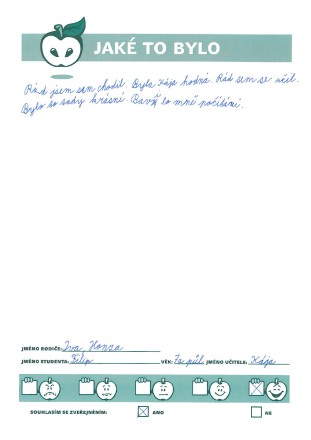 JAKÉ TO BYLO
Rád jsem sem chodil. Byla Kája hodná. Rád sem se učil.
Bylo to tady krásné. Bavilo mně počítání.
JMÉNO RODIČE: Iva, Honza
JMÉNO STUDENTA: Filip VĚK: 7a půl JMÉNO UČITELE: Kája
SOUHLASÍM SE ZVEŘEJNĚNÍM: ANO NE